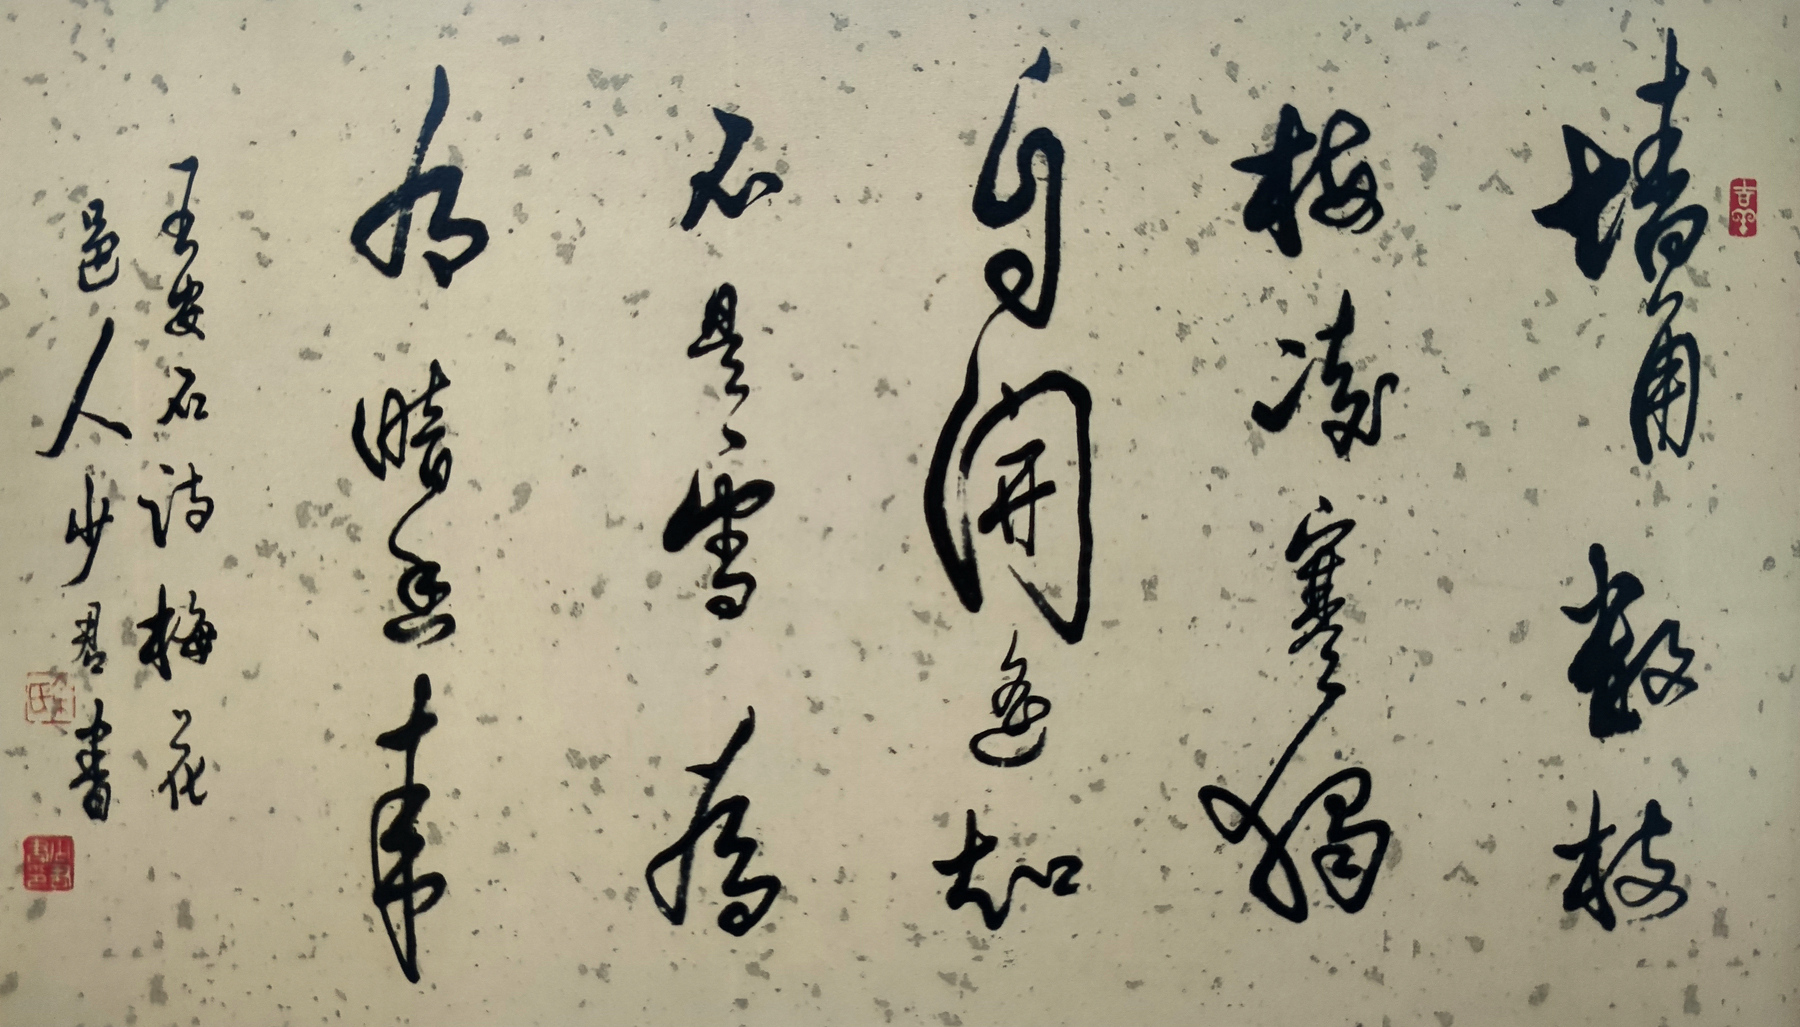 墙角数枝
梅凌寒独
自開遥知
不是雪为
有暗香来
王安石诗梅花
邑人少君書